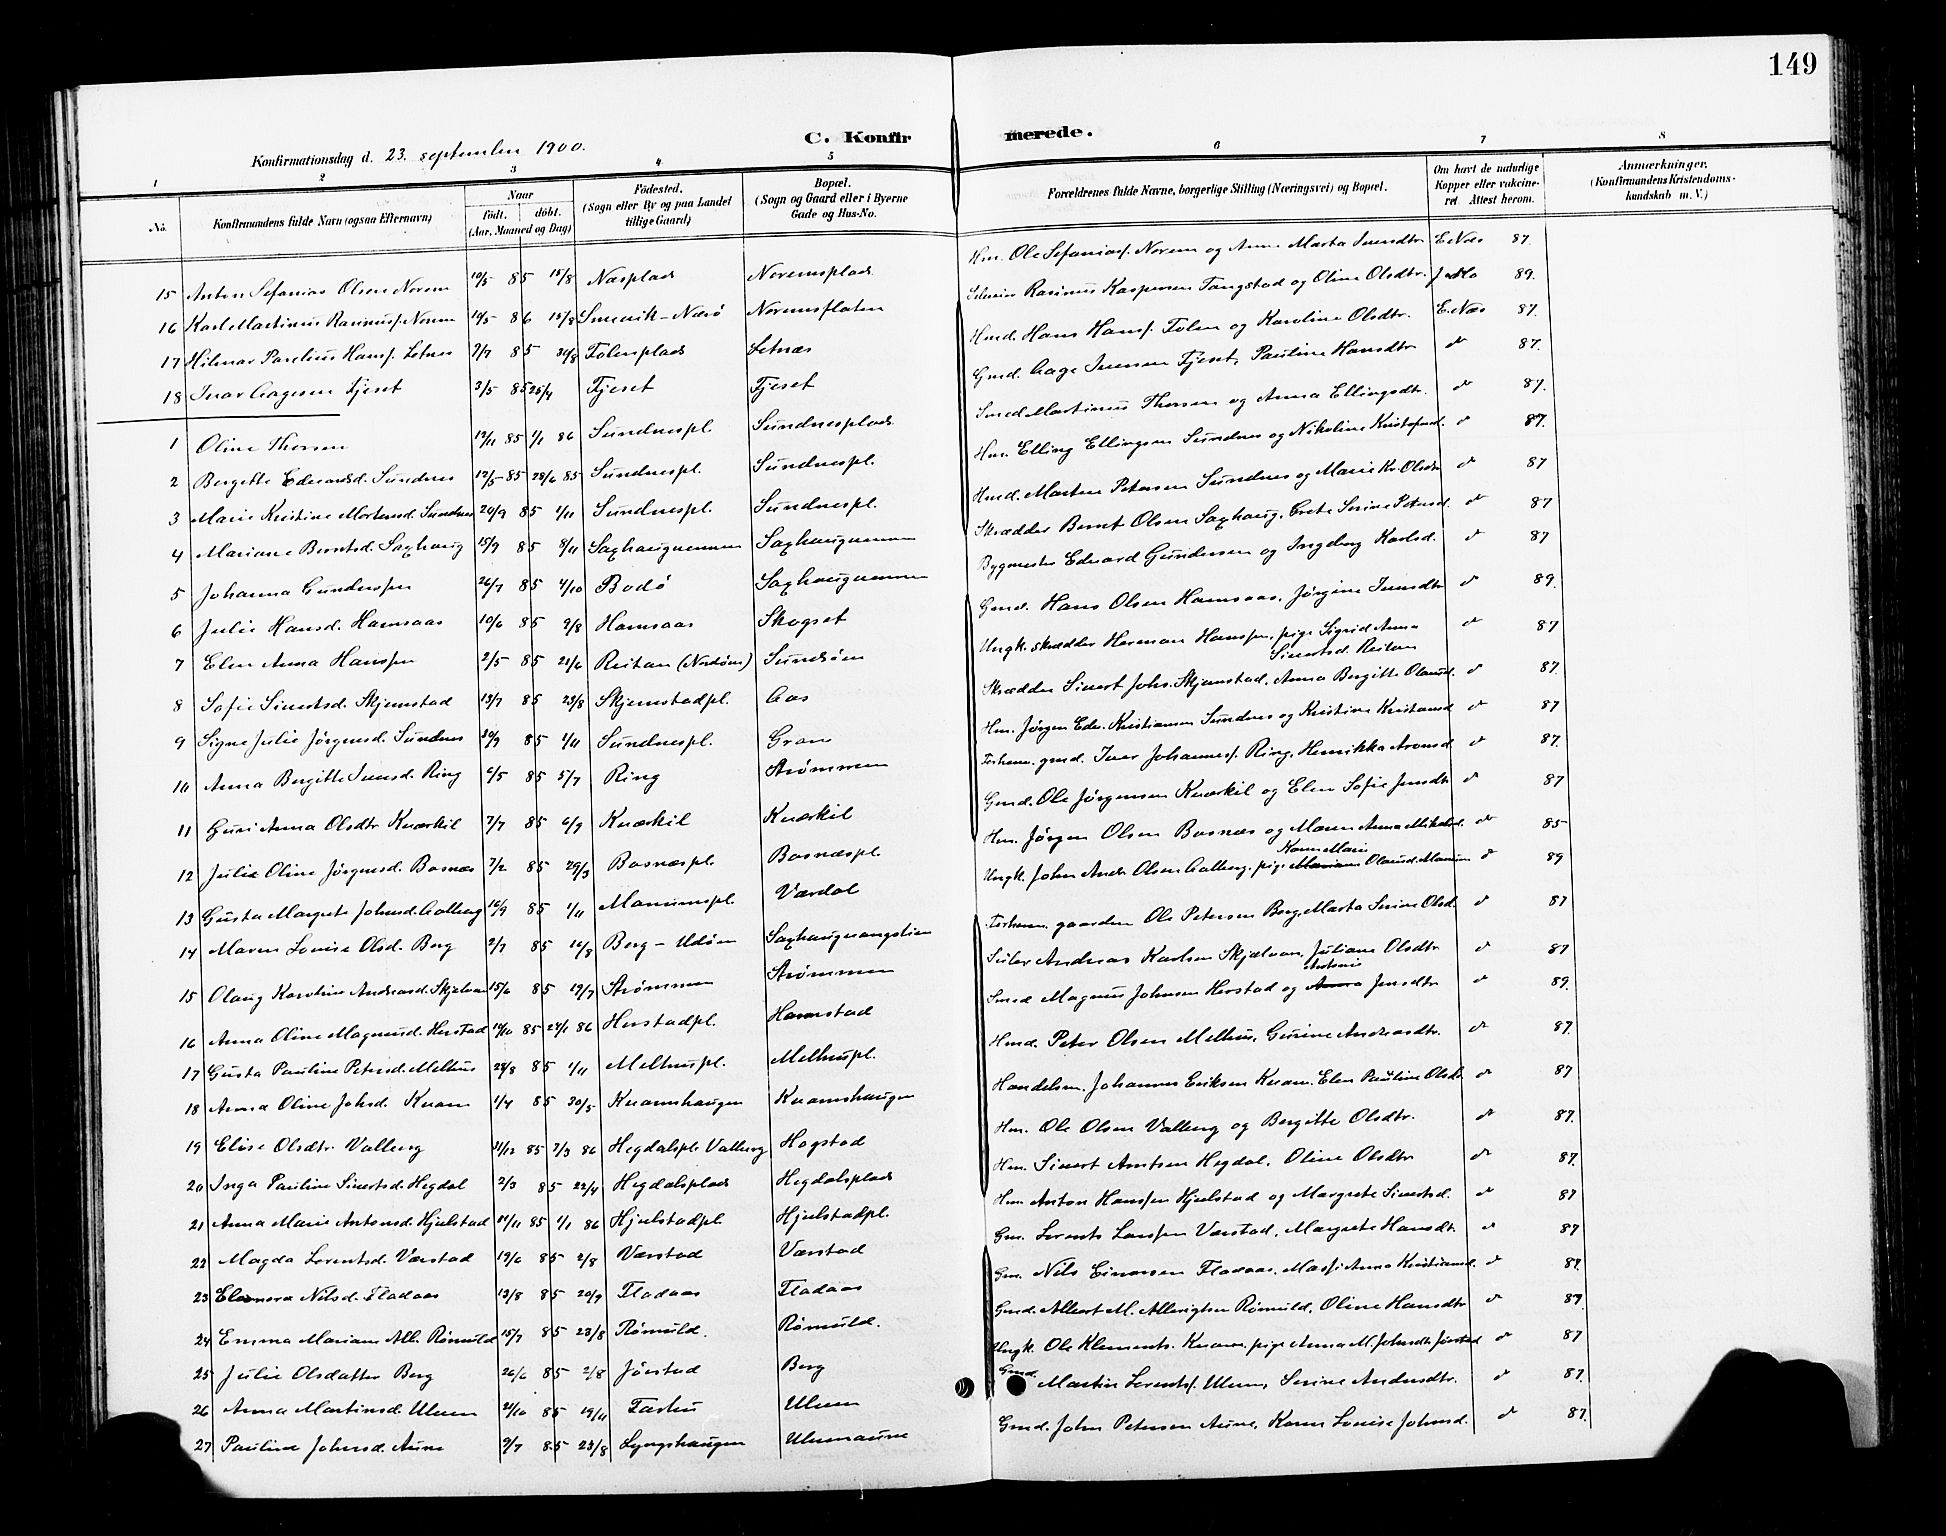 149
C. Konfirmerede.
Konfirmationsdag d. 23. september 1900.
1 2 3 4 5 6 7 8
No. Konfirmandens fulde Navn (ogsaa Efternavn) Naar født. døbt. (Aar, Maaned og Dag) Fødested. (Sogn eller By og paa Landet tillige Gaard) Bopæl. (Sogn og Gaard eller i Byerne Gade og Hus-No. Forældrenes fulde Navne, borgerlige Stilling (Næringsvei) og Bopæl. Om havt de naturlige Kopper eller vakcineret Attest herom. Anmærkninger. (Konfirmandens Kristendomskundskab m. V.)
15 Anton Sefanias Olsen Norem 10/5 85 15/8 Næsplads Noremsplads Hm. Ole Sefanias. Norem og Anne Marta Iversdtr E. Næs 87.
16 Karl Martinus Rasmusf. Norem 14/5 86 15/8 Smevik-Nærø Noremsfloten Rasmus Kaspersen Tangstad og Oline Olsdtr. J. Mo 89.
17 Hilmar Parelius Hansf. Letnes 7/7 85 30/8 Folensplads Letnæs Hmd. Hans Hansf. Folen og Karoline Olsdtr. E. Næs 87.
18 Ivar Aagesen Fjeset 3/5 85 25/4 Fjeset Fjeset Gmd. Aage Iversen Fjeset, Pauline Hansdtr d 87.
1 Oline Thorsen 12/11 85 1/1 86 Sundnespl. Sundnesplads Smed Martinus Thorsen og Anna Ellingsdtr. d 87.
2 Bergitte Edvardsd. Sundnes 12/5 85 28/6 85 Sundnespl. Sundnespl. Hm. Elling Ellingsen Sundnes og Nikoline Kristofersd. d 87.
3 Marie Kristine Mortensd. Sundnes 20/9 85 1/11 Sundnespl. Sundnespl. Hmd. Morten Petersen Sundnes og Marie Kr. Olsdtr d 87
4 Mariane Berntsd. Saxhaug 15/9 85 8/11 Saxhaugvemmen Saxhaugvemmen Skrædder Bernt Olsen Saxhaug, Grete Serine Petersd. d 87
5 Johanna Gunderssen 26/7 85 4/10 Bodø Saxhaugvemmen Bygmester Edvard Gundersen og Ingeborg Karlsd. d 87
6 Julie Hansd. Hamsaas 10/6 85 2/8 Hamsaas Skogset Gmd. Hans Olsen Hamsaas, Jørgine Iversdtr d 89.
7 Elen Anna Hanssen 2/5 85 21/6 Reitan (Nordøen) Sundsøen Ungk. skrædder Herman Hanssen, pige Sigrid Anna Sivertsd. Reitan d 87
8 Sofie Sivertsd. Skjemstad 13/7 85 23/8 Skjemstadpl. Aas Skrædder Sivert Johs. Skjemstad, Anna Bergitte Olausd. d 87.
9 Signe Julie Jørgensd. Sundnes 30/9 85 1/11 Sundnespl. Gran Hm. Jørgen Edv. Kristiansen Sundnes og Kristine Kristansd d 87
10 Anna Bergitte Iversd. Ring 6/5 85 5/7 Ring Strømmen Forhenv. gmd. Iver Johannesf. Ring, Henrikka Aronsd. d 87.
11 Guri Anna Olsdtr Kværkil 7/7 85 6/9 Kværkil Kværkil Gmd. Ole Jørgensen Kværkil og Elen Sofie Jensdtr d 87
12 Julie Oline Jørgensd. Bosnæs 7/2 85 29/3 Bosnæspl. Bosnæspl. Hm. Jørgen Olsen Bosnæs og Maren Anna Mikalsd. d 85
13 Gusta Margrete Johnsd. Aalberg 16/9 85 1/11 Manumspl. Værdal Ungk. John Andr. Olsen Aalberg, pige Karen Marie Olausd. Manum d 89
14 Maren Louise Olsd. Berg 2/7 85 16/8 Berg - Udøen Saxhaugvangstien Forhenv. gaardm. Ole Petersen Berg, Marta Serine Olsd. d 87
15 Olaug Karoline Andreasd. Skjelvan 15/6 85 19/7 Strømmen Strømmen Seiler Andreas Karlsen Skjælvan, Juliane Olsdtr d 87
16 Anna Oline Magnusd. Herstad 14/10 85 24/1 86 Herstadpl. Hamstad Smed Magnus Johnsen Herstad og Antonie Jensdtr d 89.
17 Gusta Pauline Petersd. Melhus 28/8 85 1/11 Melhuspl. Melhuspl. Hmd. Peter Olsen Melhus, Gurine Andreasdtr. d 87.
18 Anna Oline Johsd. Kvam 1/4 85 30/5 Kvamshaugen Kvamshaugen Handelsm. Johannes Eriksen Kvam, Elen Pauline Olsd. d 87
19 Elise Olsdtr. Valberg 4/12 85 7/3 86 Hegdalspl. Valberg Hogstad Hm. Ole Olsen Valberg og Bergitte Olsdtr. d 87.
20 Inga Pauline Sivertsd. Hegdal 2/3 85 22/4 Hegdalsplads Hegdalsplads Hm. Sivert Arntsen Hegdal, Oline Olsdtr d 87.
21 Anna Marie Antonsd. Hjelstad 14/11 85 1/1 86 Hjelstadpl. Hjelstadpl. Hm Anton Hanssen Hjelstad og Margrete Sivertsd. d 87
22 Magda Lorentsd. Værstad 19/6 85 2/8 Værstad Værstad Gm. Lorents Larssen Værstad, Margrete Hansdtr. d 87
23 Eleonora Nilsd. Fladaas 13/8 85 20/9 Fladaas Fladaas Gm. Nils Einarsen Fladaas, Massi Anna Kristiansd. d 87.
24 Emma Mariane Alb. Rømuld 15/7 85 23/8 Rømuld. Rømuld. Gmd. Albert M. Albrigtsen Rømuld, Oline Hansdtr d 87.
25 Julie Olsdatter Berg 26/6 85 2/8 Jørstad Berg Ungk. Ole Klements. Kvam, pige Anna M. Johnsdtr Jørstad d 87
26 Anna Martinsd. Ulven 21/10 85 19/11 Forhu Ulven Gmd. Martin Lorentsf. Ulven, Serine Andersdtr. d 87.
27 Pauline Johnsd. Aune 9/7 85 23/8 Lyngshaugen Ulvenaune Gmd. John Petersen Aune, Karen Louise Johnsd. d 87.